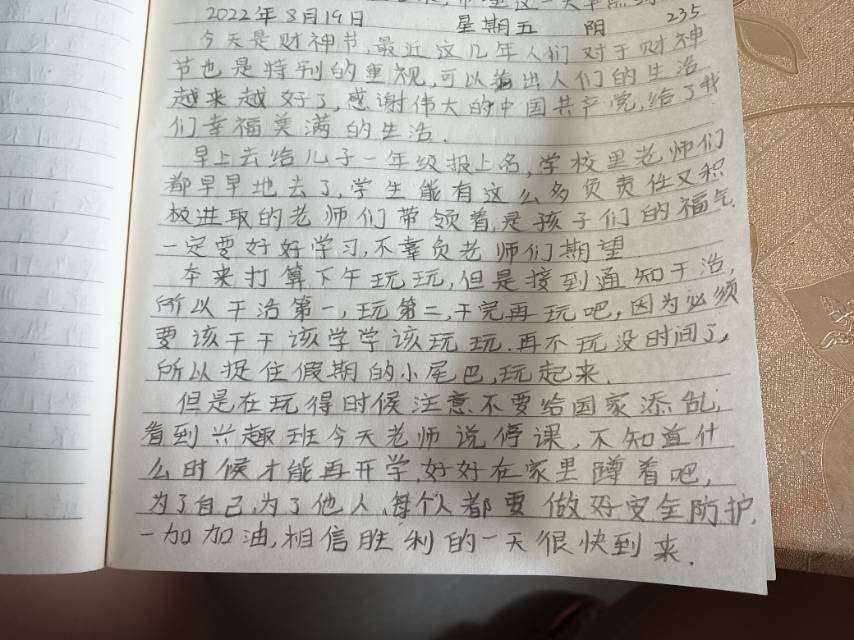 2022年8月19日 星期五 阴 235
今天是财神节,最近这几年人们对于财神
节也是特别的重视,可以看出人们的生活
越来越好了,感谢伟大的中国共产党,给了我
们幸福美满的生活.
早上去给儿子一年级报上名,学校里老师们
都早早地去了,学生能有这么多负责任又积
极进取的老师们带领着,是孩子们的福气.
一定要好好学习,不辜负老师们期望.
本来打算下午玩玩,但是接到通知干活,
所以干活第一,玩第二,干完再玩吧,因为必须
要该干干该学学该玩玩.再不玩没时间了,
所以捉住假期的小尾巴,玩起来.
但是在玩得时候注意不要给国家添乱,
看到兴趣班今天老师说停课,不知道什
么时候才能再开学,好好在家里蹲着吧,
为了自己,为了他人,每个人都要做好安全防护.
一加加油,相信胜利的一天很快到来.